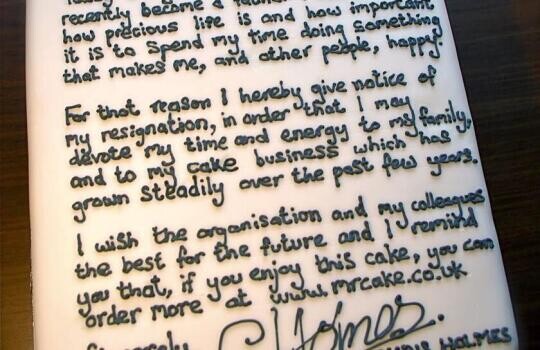 recently become a
how precious life is and how important
it is to spend my time doing something
that makes me, and other people, happy.
For that reason I hereby give notice of
my resignation, in order that I may
devote my time and energy to my family,
and to my cake business which has
grown steadily over the past few years.
I wish the organisation and my colleagues
the best for the future and I remind
you that, if you enjoy this cake, you can
order more at www.mrcake.co.uk
Sincerely
CHolmes.
HOLMES